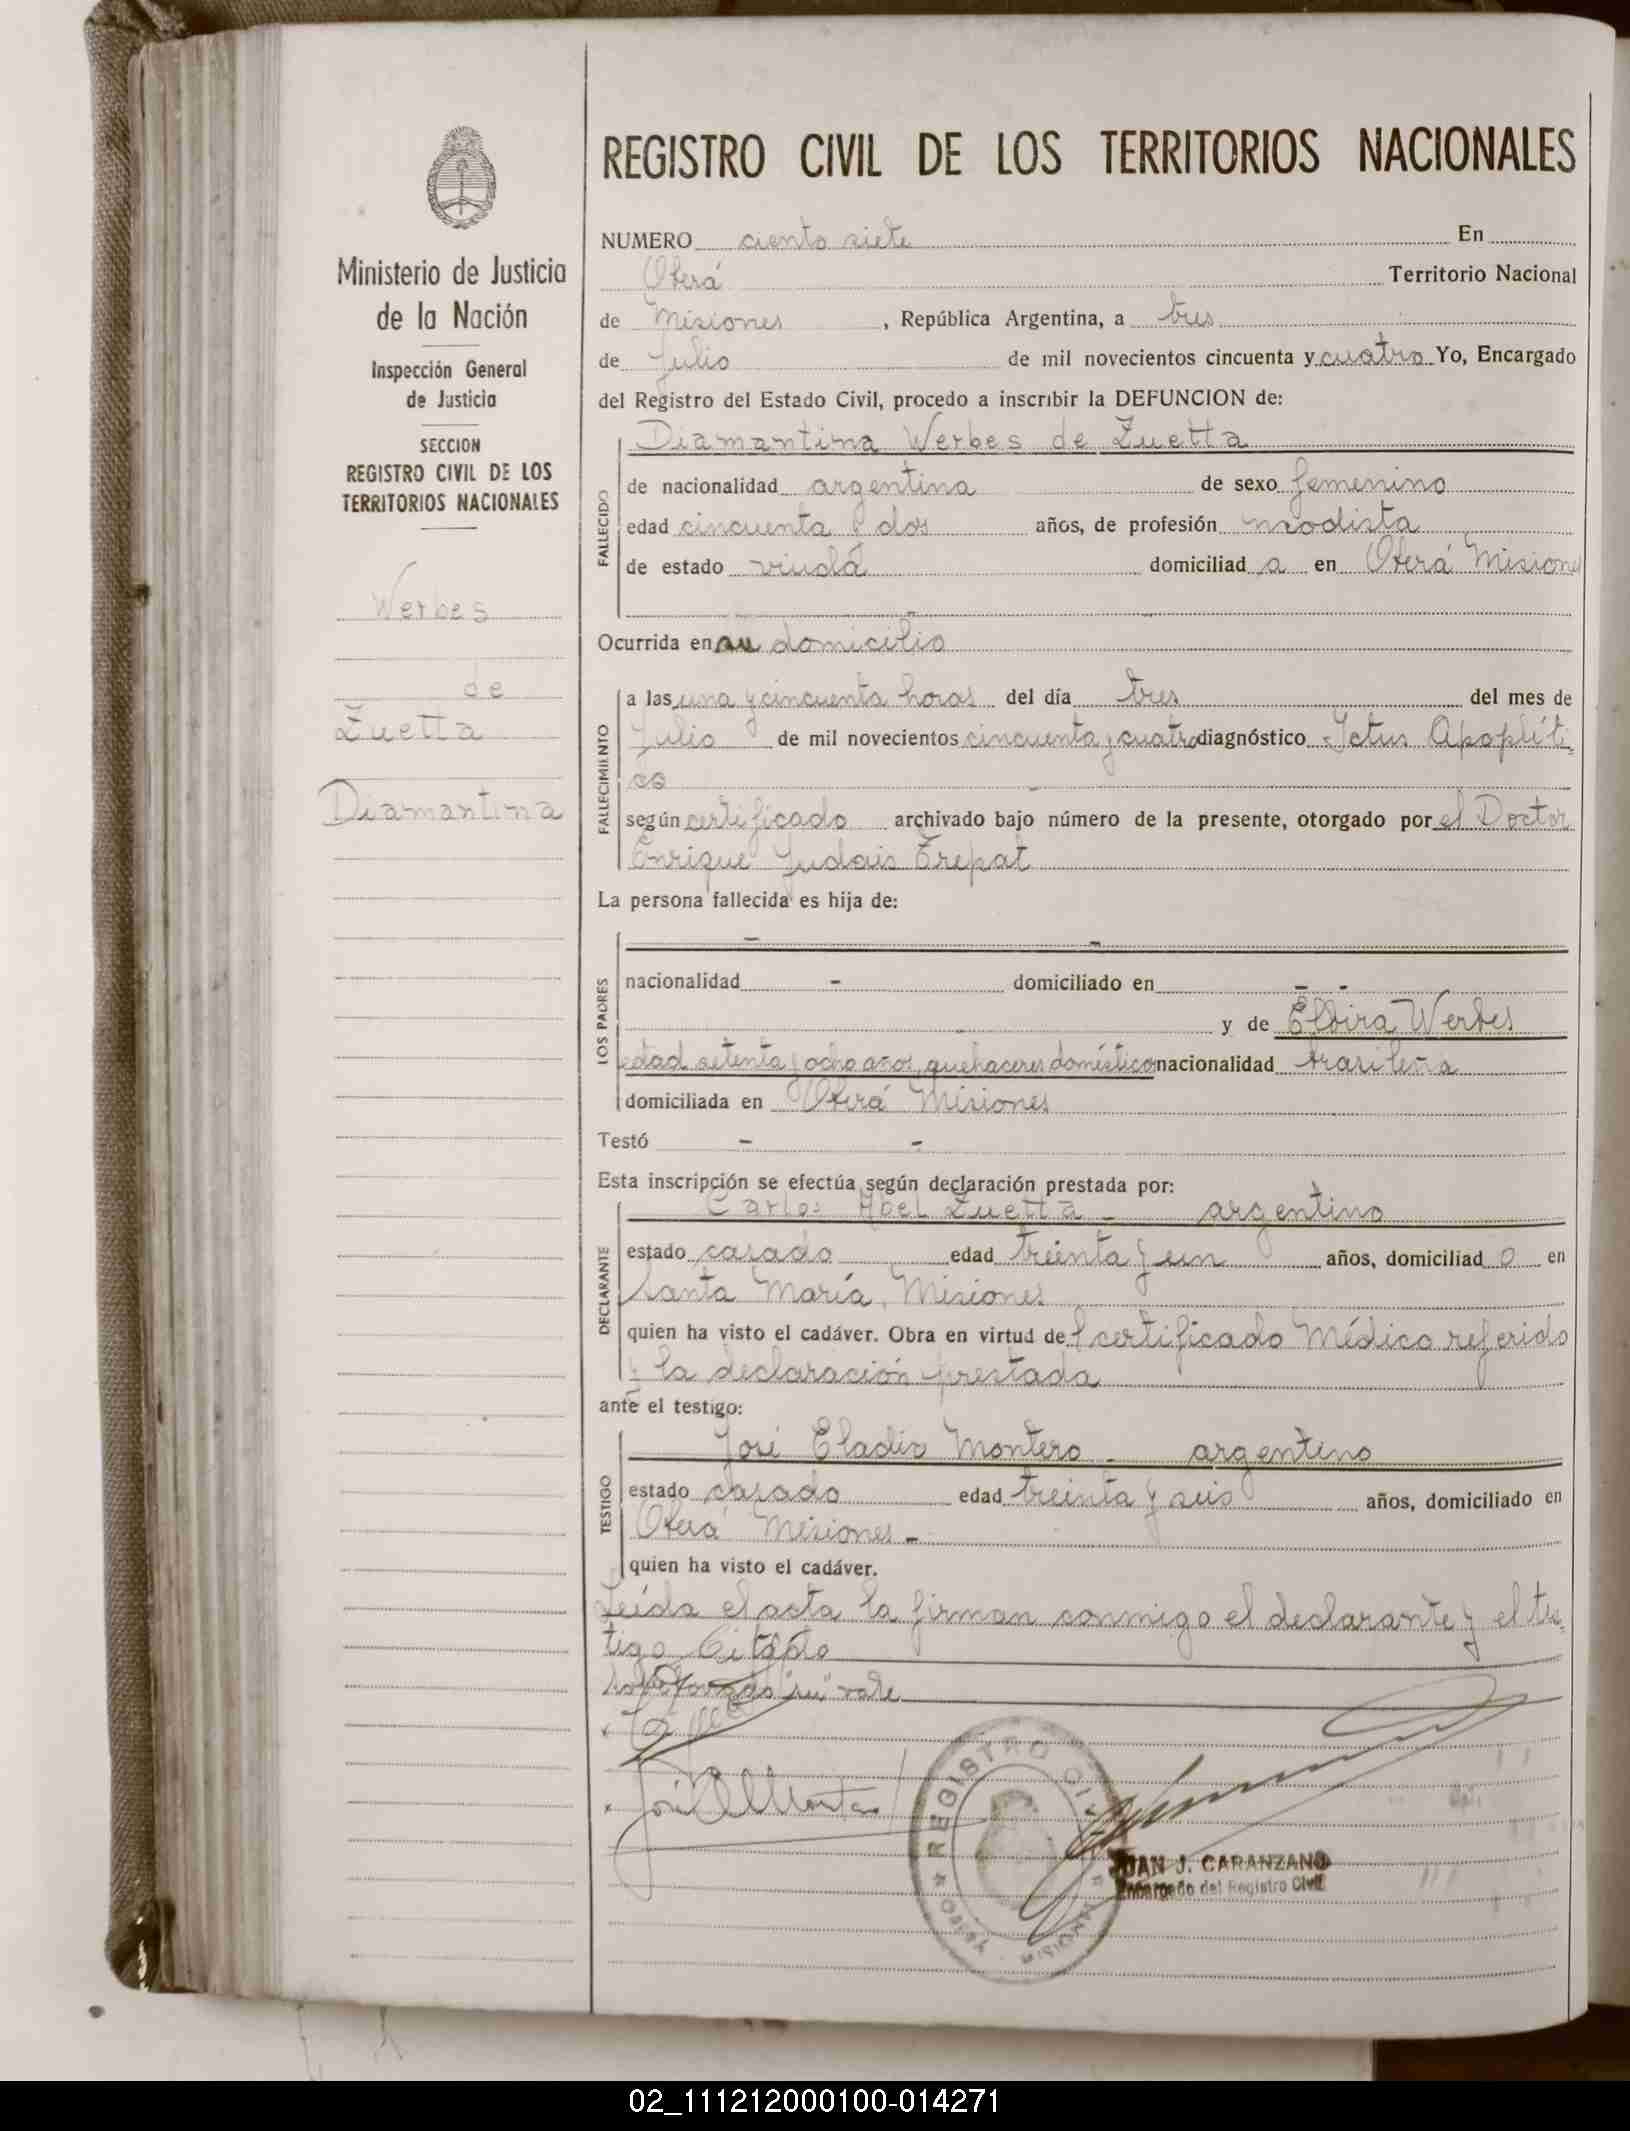 REGISTRO CIVIL DE LOS TERRITORIOS NACIONALES
Ministerio de Justicia
de la Nación
Inspección General
de Justicia
SECCION
REGISTRO CIVIL DE LOS
TERRITORIOS NACIONALES
Werbes
de
Zuetta
Diamantina
NUMERO ciento siete En
Oberá Territorio Nacional
de Misiones , República Argentina, a tres
de Julio de mil novecientos cincuenta y cuatro Yo, Encargado
del Registro del Estado Civil, procedo a inscribir la DEFUNCION de:
FALLECIDO
Diamantina Werbes de Zuetta
de nacionalidad argentina de sexo femenino
edad cincuenta y dos años, de profesión modista
de estado viuda domiciliad a en Oberá Misiones
Ocurrida en su domicilio
FALLECIMIENTO
a las una y cincuenta horas del día tres del mes de
Julio de mil novecientos cincuenta y cuatro diagnóstico Ictus Apopléti-
co
según certificado archivado bajo número de la presente, otorgado por el Doctor
Enrique Judais Trepat
La persona fallecida es hija de:
LOS PADRES
- -
nacionalidad - domiciliado en - -
y de Elvira Werbes
edad setenta y ocho años, quehaceres domésticos nacionalidad brasileña
domiciliada en Oberá Misiones
Testó - -
Esta inscripción se efectúa según declaración prestada por:
DECLARANTE
Carlos Abel Zuetta - argentino
estado casado edad treinta y un años, domiciliad o en
Santa María, Misiones
quien ha visto el cadáver. Obra en virtud del certificado Médico referido
y la declaración prestada
ante el testigo:
TESTIGO
José Eladio Montero - argentino
estado casado edad treinta y seis años, domiciliado en
Oberá Misiones -
quien ha visto el cadáver.
Leída el acta la firman conmigo el declarante y el tes-
tigo Citado
"su" vale
REGISTRO CIVIL
OBERA - MISIONES
JUAN J. CARANZANO
Encargado del Registro Civil
02_111212000100-014271